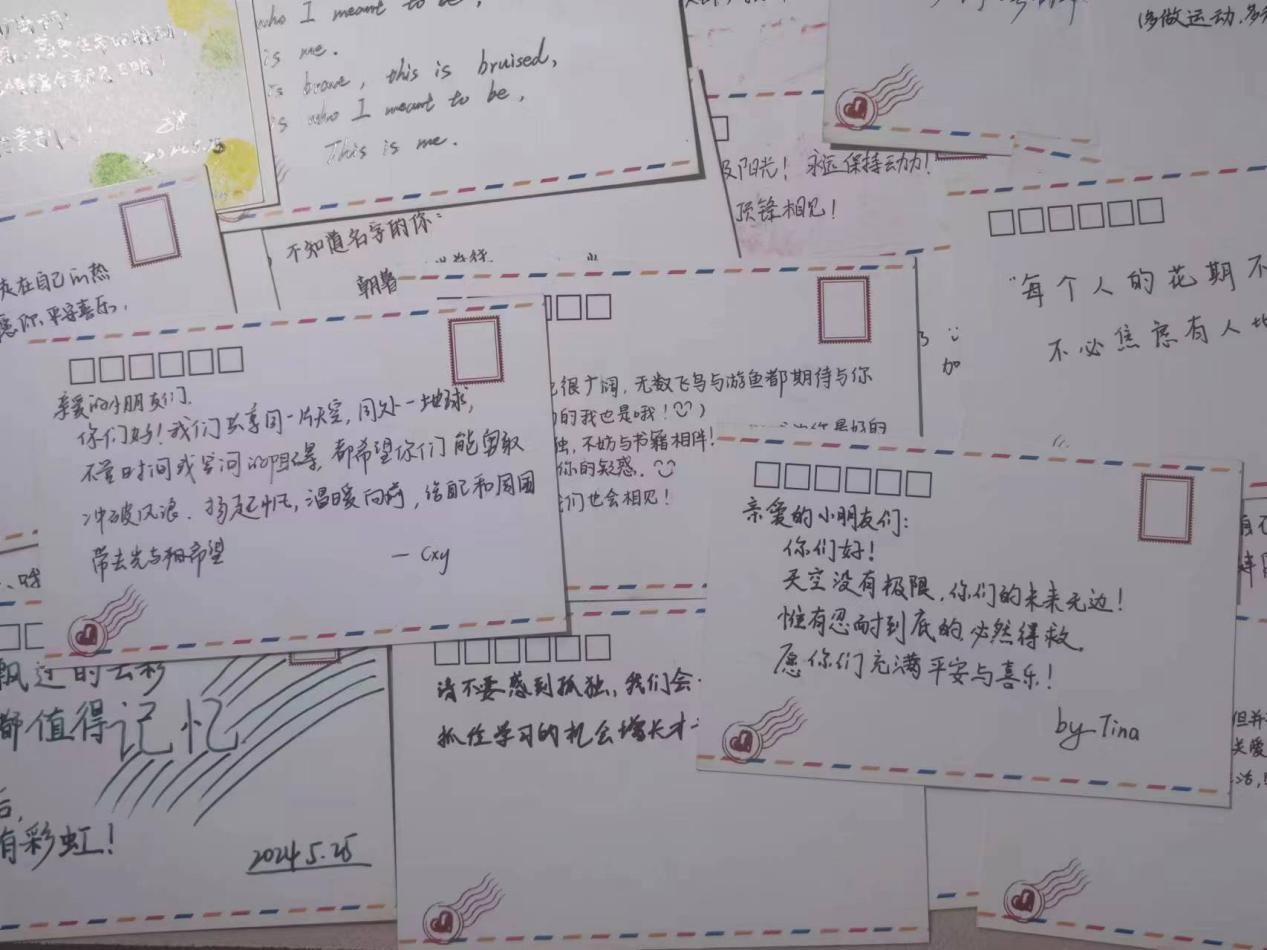 who I meant to be,
is me.
is brave, this is bruised,
is who I meant to be,
This is me.
多做运动,多
阳光!永远保持动力!
顶锋相见!
不知道名字的你:
在自己的热
愿你平安喜乐,
"每个人的花期不
不必焦虑有人
加
很广阔,无数飞鸟与游鱼都期待与你
的我也是哦!
不妨与书籍相伴!
你的疑惑.
们也会相见!
亲爱的小朋友们,
你们好!我们共享同一片天空,同处一地球,
不管时间或空间的阻碍,都希望你们能勇敢
冲破风浪、扬起帆,温暖向前,给自己和周围
带去光与和希望
— Cxy
亲爱的小朋友们:
你们好!
天空没有极限,你们的未来无边!
惟有忍耐到底的必然得救.
愿你们充满平安与喜乐!
by Tina
飘过的云彩
都值得记忆
后,
有彩虹!
2024.5.25
请不要感到孤独,我们会
抓住学习的机会增长才
关爱